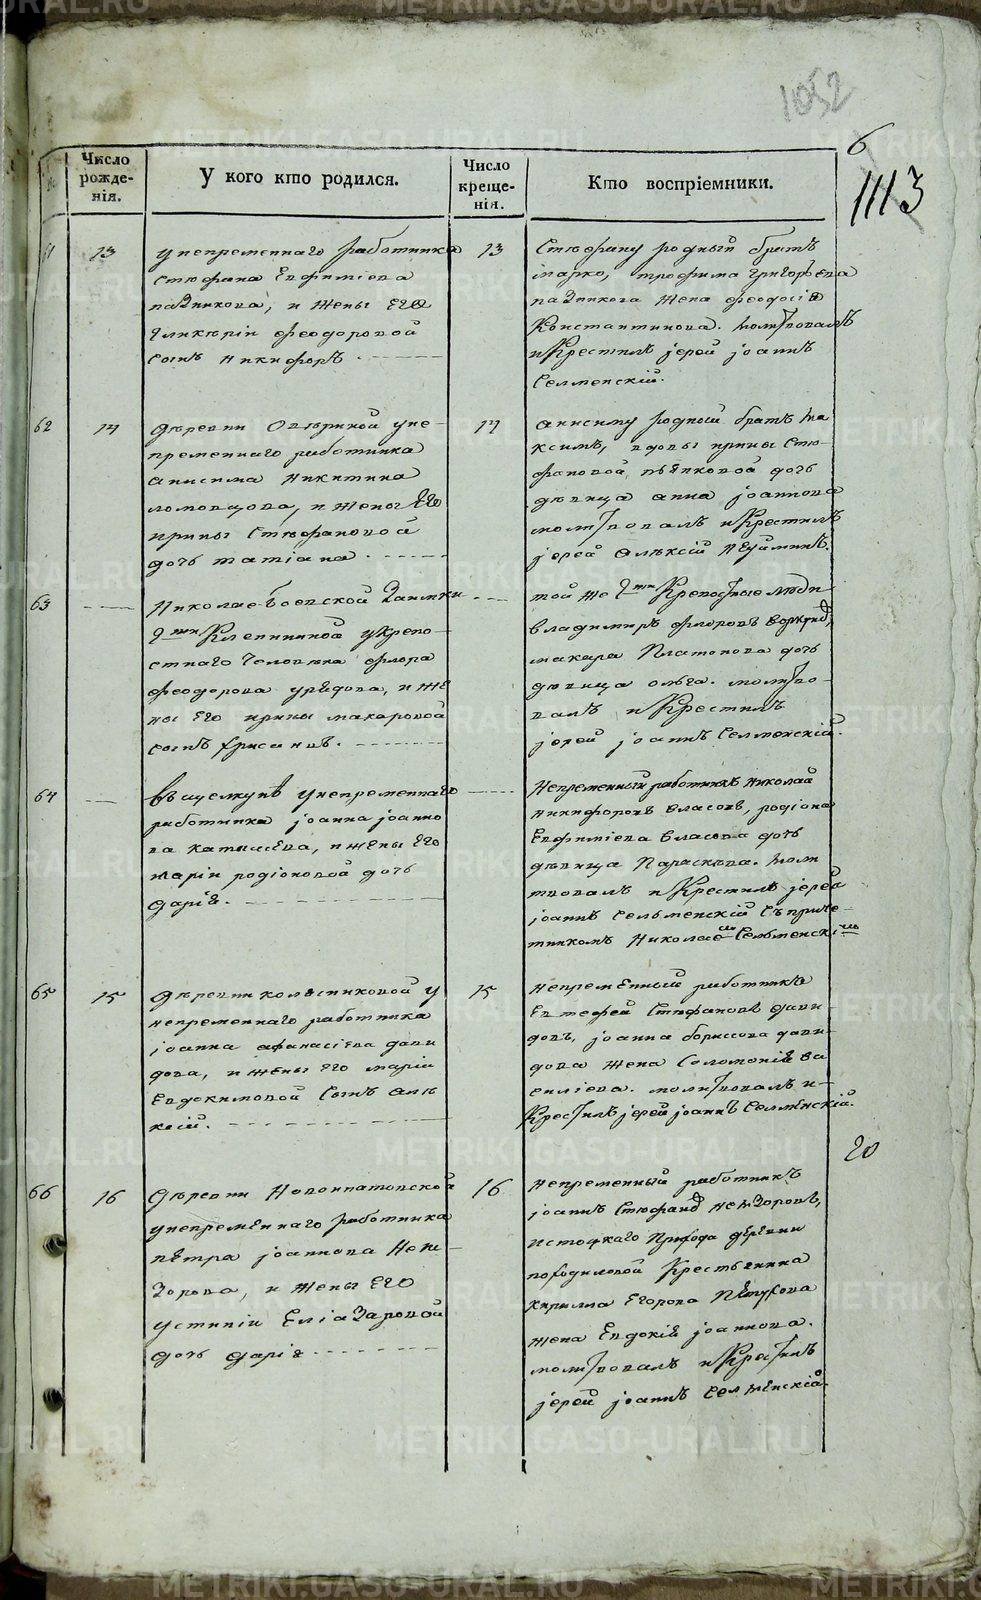 1052
6
1113
Число рожде-нія.
У кого кто родился.
Число креще-нія.
Кто воспріемники.
61
13
унепременнаго работника
Стефана Евфиміева
пазникова, и жены Его
Гликеріи феодоровой
Сынъ никифоръ.
13
Стефану родный братъ
марко, трофима григорьева
пазникова жена феодосія
Константинова. молитвовалъ
и Крестилъ іерей іоаннъ
Селменскій.
62
14
деревни
уне-
пременнаго работника
анисима никитина
ломовцова, и жены Его
ирины Стефановой
дочь татіана.
14
анисиму родный братъ ма
ксимъ, вдовы ирины Сте-
фановой
дочь
девица анна іоаннова
молитвовалъ и Крестилъ
іерей алексій
63
Николае-боевской Заимки
укрепо-
стнаго человека флора
феодорова
и же
ны Его ирины макаровой
Сынъ хрисанъ.
той же
Крепостные люди
владимиръ флоровъ
макара Платонова дочь
девица ольга. молитво-
валъ и Крестилъ
іерей іоаннъ Селменскій.
64
въ щелкунѣ унепременнаго
работника іоанна іоанно
ва
и жены Его
маріи родіоновой дочь
дарія.
Непременный работникъ николай
никифоровъ власовъ, родіона
Евфиміева власова дочь
девица Параскева. моли
твовалъ и Крестилъ іерей
іоаннъ Сельменскій Съ приче-
тникомъ Николаемъ Сельменскимъ
65
15
деревни колясниковой у
непременнаго работника
іоанна афанасіева дави
дова, и жены его маріи
Евдокимовой Сынъ але
ксій.
15
непременный работникъ
Евтефей Стефановъ дави
довъ, іоанна борисова дави-
дова жена Соломонія ва
силіева. молитвовалъ и-
Крестилъ іерей іоаннъ Селменскій.
20
66
16
деревни Новоипатовской
унепременнаго работника
петра іоаннова Неж-
Зорова, и жены Его
устиніи Еліазаровой
дочь дарія
16
непременный работникъ
іоаннъ Стефановъ
истокскаго прихода деревни
походиловой Крестьянина
Кирилла Егорова Петухова
жена Евдокія іоаннова.
молитвовалъ и Крестилъ
іерей іоаннъ Селменскій.
METRIKI.GASO-URAL.RU